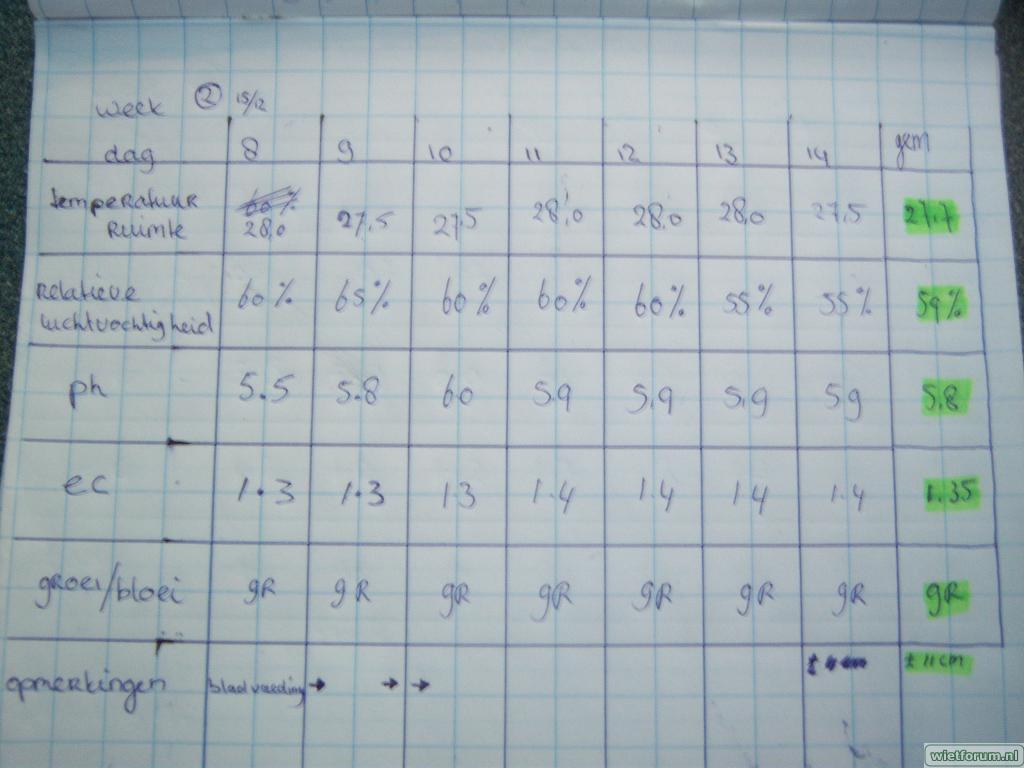 week ② 15/12
dag 8 9 10 11 12 13 14 gem
temperatuur
Ruimte 28,0 27,5 27,5 28,0 28,0 28,0 27,5 27,7
relatieve
luchtvochtigheid 60% 65% 60% 60% 60% 55% 55% 59%
ph 5.5 5.8 60 5.9 5.9 5,9 59 5.8
ec 1.3 1.3 13 1.4 1.4 14 1.4 1.35
groei/bloei gR gR gR gR gR gR gR gR
opmerkingen bladvoeding → → → ± 11cm
wietforum.nl